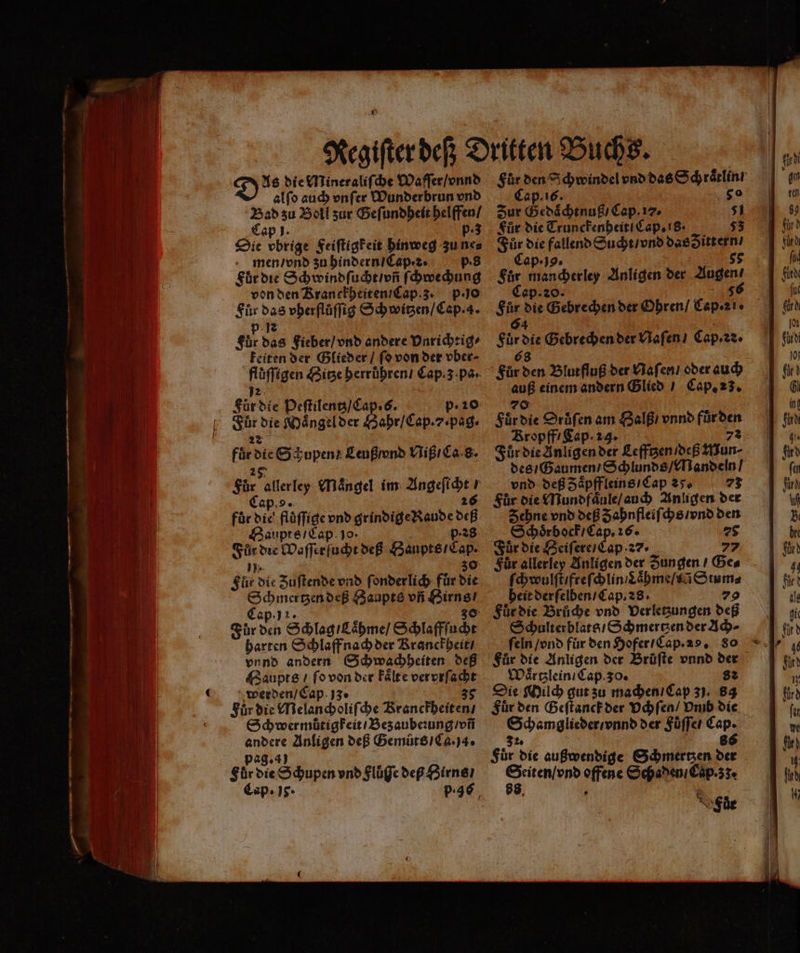 Regiſter deß Dritten Buchs.
DAs die Mineraliſche Waſſer/vnnd
alſo auch vnſer Wunderbrun vnd
Bad zu Boll zur Geſundheit helffen/
Cap 1. p.3
Die vbrige Feiſtigkeit hinweg zu ne-
men/vnd zu hindern/Cap.2. p.8
Für die Schwindſucht/vñ ſchwechung
von den Kranckheiten/Cap.3. p.10
Für das vberflüſſig Schwitzen/Cap.4.
p 12
Für das Fieber/vnd andere Vnrichtig-
keiten der Glieder / ſo von der vber-
flüſſigen Hitze herrühren/ Cap.3.pa.
12.
Für die Peſtilentz/Cap.6. p.20
Für die Mängel der Hahr/Cap.7.pag.
22
für die Schupen/ Leuß/vnd Niß/Ca.8.
25
Für allerley Mängel im Angeſicht /
Cap.9. 26
für die flüſſige vnd grindige Raude deß
Haupts/Cap.10. p.28
Für die Waſſerſucht deß Haupts/Cap.
11. 30
Für die Zuſtende vnd ſonderlich für die
Schmertzen deß Haupts vñ Hirns/
Cap.12. 30
Für den Schlag/Lähme/ Schlaffſucht
harten Schlaff nach der Kranckheit/
vnnd andern Schwachheiten deß
Haupts / ſo von der kälte vervrſacht
werden/Cap.13. 35
Für die Melancholiſche Kranckheiten/
Schwermütigkeit/Bezauberung/vñ
andere Anligen deß Gemüts/Ca.14.
pag.41
Für die Schupen vnd Flüſſe deß Hirns/
Cap. 15. p.46
Für den Schwindel vnd das Schrätlin/
Cap.16. 50
Zur Gedächtnuß/Cap.17. 51
Für die Trunckenheit/Cap.18. 53
Für die fallend Sucht/vnd das Zittern/
Cap.19. 55
Für mancherley Anligen der Augen/
Cap.20. 56
Für die Gebrechen der Ohren/ Cap.21.
64
Für die Gebrechen der Naſen/ Cap.22.
68
Für den Blutfluß der Naſen/ oder auch
auß einem andern Glied / Cap.23.
70
Für die Drüſen am Halß/ vnnd für den
Kropff/Cap.24. 72
Für die Anligen der Leffzen/deß Mun-
des/Gaumen/Schlunds/Mandeln/
vnd deß Zäpffleins/Cap 25. 73
Für die Mundfäule/auch Anligen der
Zehne vnd deß Zahnfleiſchs/vnd den
Schörbock/Cap.26. 75
Für die Heiſere/Cap.27. 77
Für allerley Anligen der Zungen / Ge-
ſchwulſt/freſchlin/Lähme/vñ Stum-
heit derſelben/Cap.28. 79
Für die Brüche vnd Verletzungen deß
Schulterblats/Schmertzen der Ach-
ſeln/vnd für den Hofer/Cap.29. 80
Für die Anligen der Brüſte vnnd der
Wärtzlein/Cap.30. 82
Die Milch gut zu machen/Cap 31. 84
Für den Geſtanck der Vchſen/ Vnd die
Schamglieder/vnnd der Füſſe/ Cap.
32. 86
Für die außwendige Schmertzen der
Seiten/vnd offene Schaden/Cap.33.
88.
Für